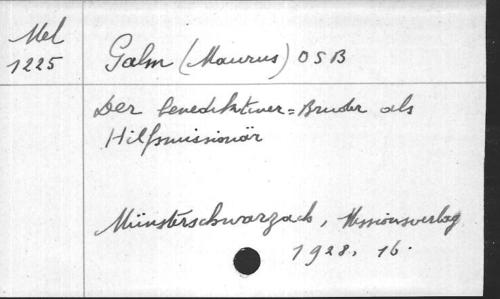 Mel
1225
Galm (Maurus) OSB
Der benediktiner=Bruder als
Hilfsmissionär
Münsterschwarzach, Missionsverlag
1928, 16.